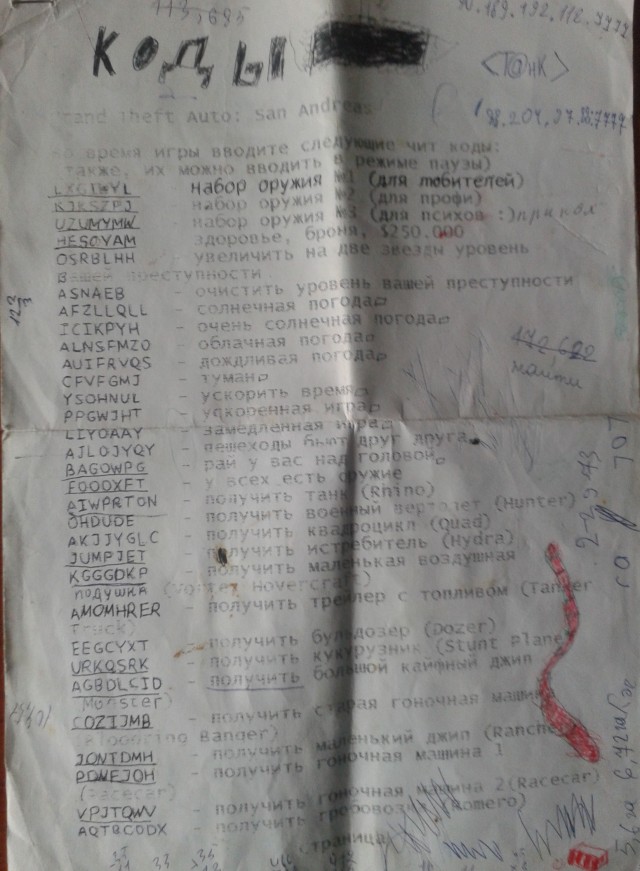 113,5695
КОДЫ
<Т@нК>
Grand Theft Auto: San Andreas
Во время игры вводите следующие чит коды:
также, их можно вводить в режиме паузы)
LXGIWYL - набор оружия №1 (для любителей)
KJKSZPJ - набор оружия №2 (для профи)
UZUMYMW - набор оружия №3 (для психов :)
HESOYAM - здоровье, броня, $250.000
OSRBLHH - увеличить на две звезды уровень
Вашей преступности
ASNAEB - очистить уровень вашей преступности
AFZLLQLL - солнечная погода
ICIKPYH - очень солнечная погода
ALNSFMZO - облачная погода
AUIFRVQS - дождливая погода
CFVFGMJ - туман
найти
YSOHNUL - ускорить время
PPGWJHT - ускоренная игра
LIYOAAY - замедленная игра
AJLOJYQY - пешеходы бьют друг друга
BAGOWPG - рай у вас над головой
FOOOXFT - у всех есть оружие
AIWPRTON - получить танк (Rhino)
OHDUDE - получить военный вертолет (Hunter)
AKJJYGLC - получить квадроцикл (Quad)
JUMPJET - получить истребитель (Hydra)
KGGGDKP - получить маленькая воздушная
подушка (Vortex Hovercraft)
AMOMHRER - получить трейлер с топливом (Tanker
Truck)
EEGCYXT - получить бульдозер (Dozer)
URKQSRK - получить кукурузник (Stunt Plane)
AGBDLCID - получить большой кайфный джип
(Monster)
CQZIJMB - получить старая гоночная машина
(Bloodring Banger)
JQNTDMH - получить маленький джип (Rancher)
PDNEJOH - получить гоночная машина 1
(Racecar)
VPJTQWV - получить гоночная машина 2(Racecar)
AQTBCODX - получить гробовозка (Romero)
Страница